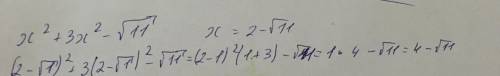 x² + 3x² - √11 x = 2 - √11
(2 - √11)² + 3(2 - √11)² - √11 = (2-1)²(1+3) - √11 = 1 · 4 - √11 = 4 - √11